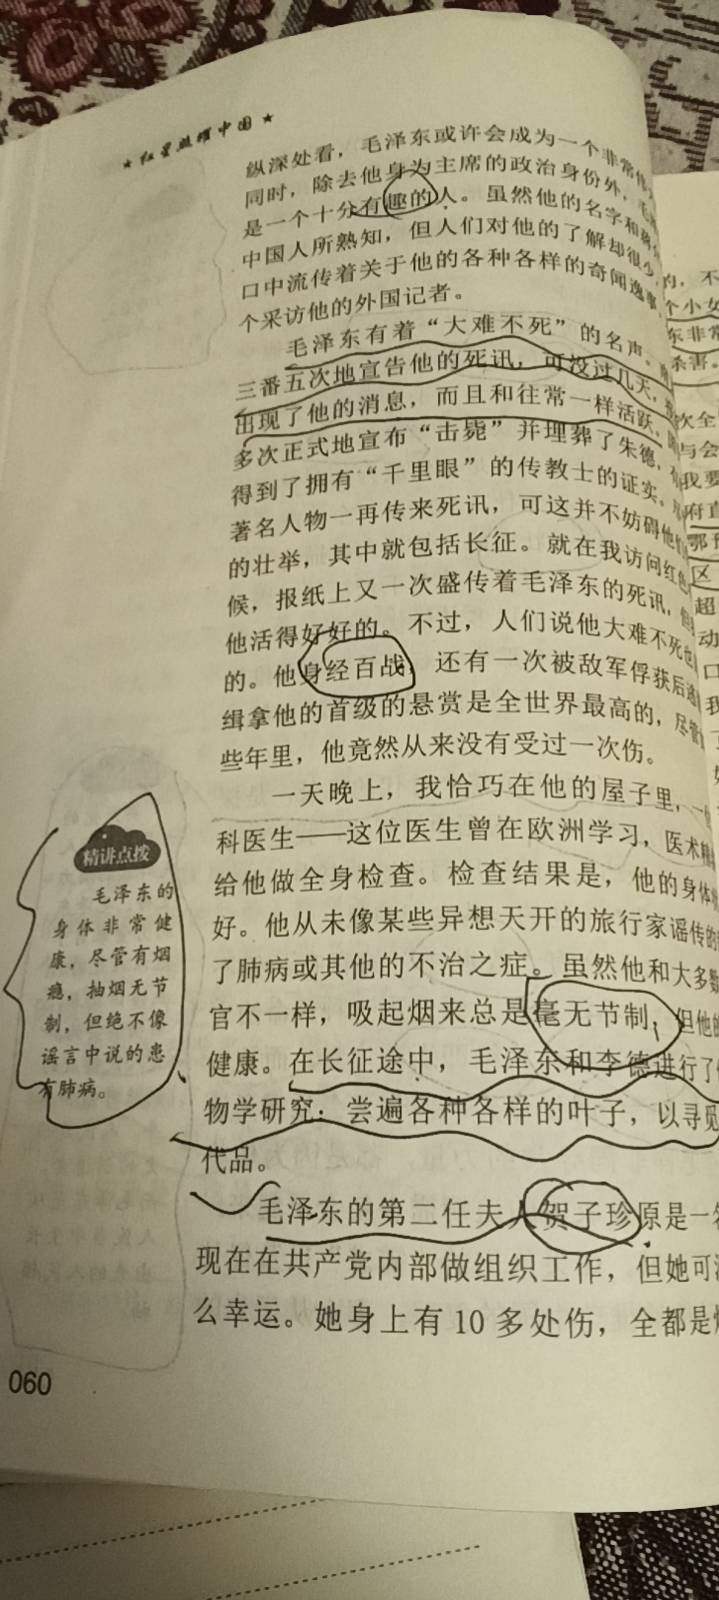 ★红星照耀中国★
纵深处看，毛泽东或许会成为一个非常
同时，除去他身为主席的政治身份外，
是一个十分有趣的人。虽然他的名字和
中国人所熟知，但人们对他的了解却很少，
口中流传着关于他的各种各样的奇闻逸事，
个采访他的外国记者。
毛泽东有着“大难不死”的名声。
三番五次地宣告他的死讯，可没过几天，
出现了他的消息，而且和往常一样活跃。
多次正式地宣布“击毙”并埋葬了朱德，
得到了拥有“千里眼”的传教士的证实。
著名人物一再传来死讯，可这并不妨碍他们
的壮举，其中就包括长征。就在我访问红色
候，报纸上又一次盛传着毛泽东的死讯，
他活得好好的。不过，人们说他大难不死也
的。他身经百战，还有一次被敌军俘获后逃
缉拿他的首级的悬赏是全世界最高的，尽管
些年里，他竟然从来没有受过一次伤。
一天晚上，我恰巧在他的屋子里，一
科医生——这位医生曾在欧洲学习，医术精
给他做全身检查。检查结果是，他的身体
好。他从未像某些异想天开的旅行家谣传的
了肺病或其他的不治之症。虽然他和大多数
官不一样，吸起烟来总是毫无节制，但他的
健康。在长征途中，毛泽东和李德进行了
物学研究：尝遍各种各样的叶子，以寻觅
代品。
毛泽东的第二任夫人贺子珍原是一
现在在共产党内部做组织工作，但她可
么幸运。她身上有10多处伤，全都是
精讲点拨
毛泽东的
身体非常健
康，尽管有烟
瘾，抽烟无节
制，但绝不像
谣言中说的患
有肺病。
060
的，不
个小女
东非常
杀害。
次全
与会
我要
府直
鄂
区
超
动
口
我